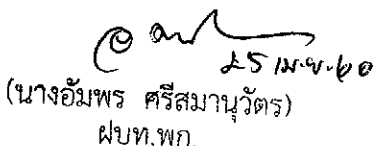 ๒๕ เม.ย. ๖๐
(นางอัมพร ศรีสมานุวัตร)
ฝบท.พก.